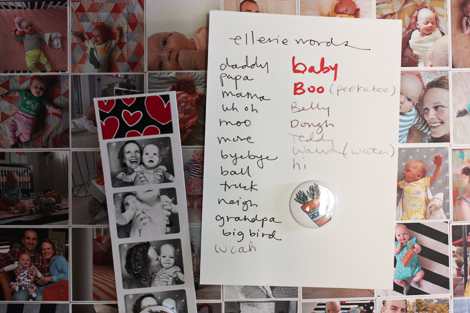 ellerie words
daddy
papa
mama
uh oh
moo
more
byebye
ball
truck
neigh
grandpa
big bird
woah
baby
Boo (peekaboo)
Belly
Dough
Teddy
wawa (water)
hi